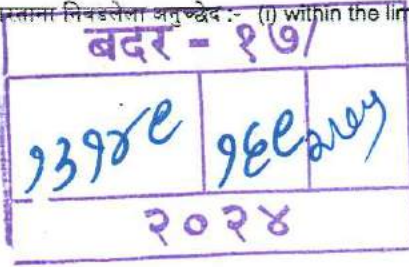 निवडलेला अनुच्छेद :- (i) within the lin
बदर - १७/
१३१४९ १६९ २०१
२०२४